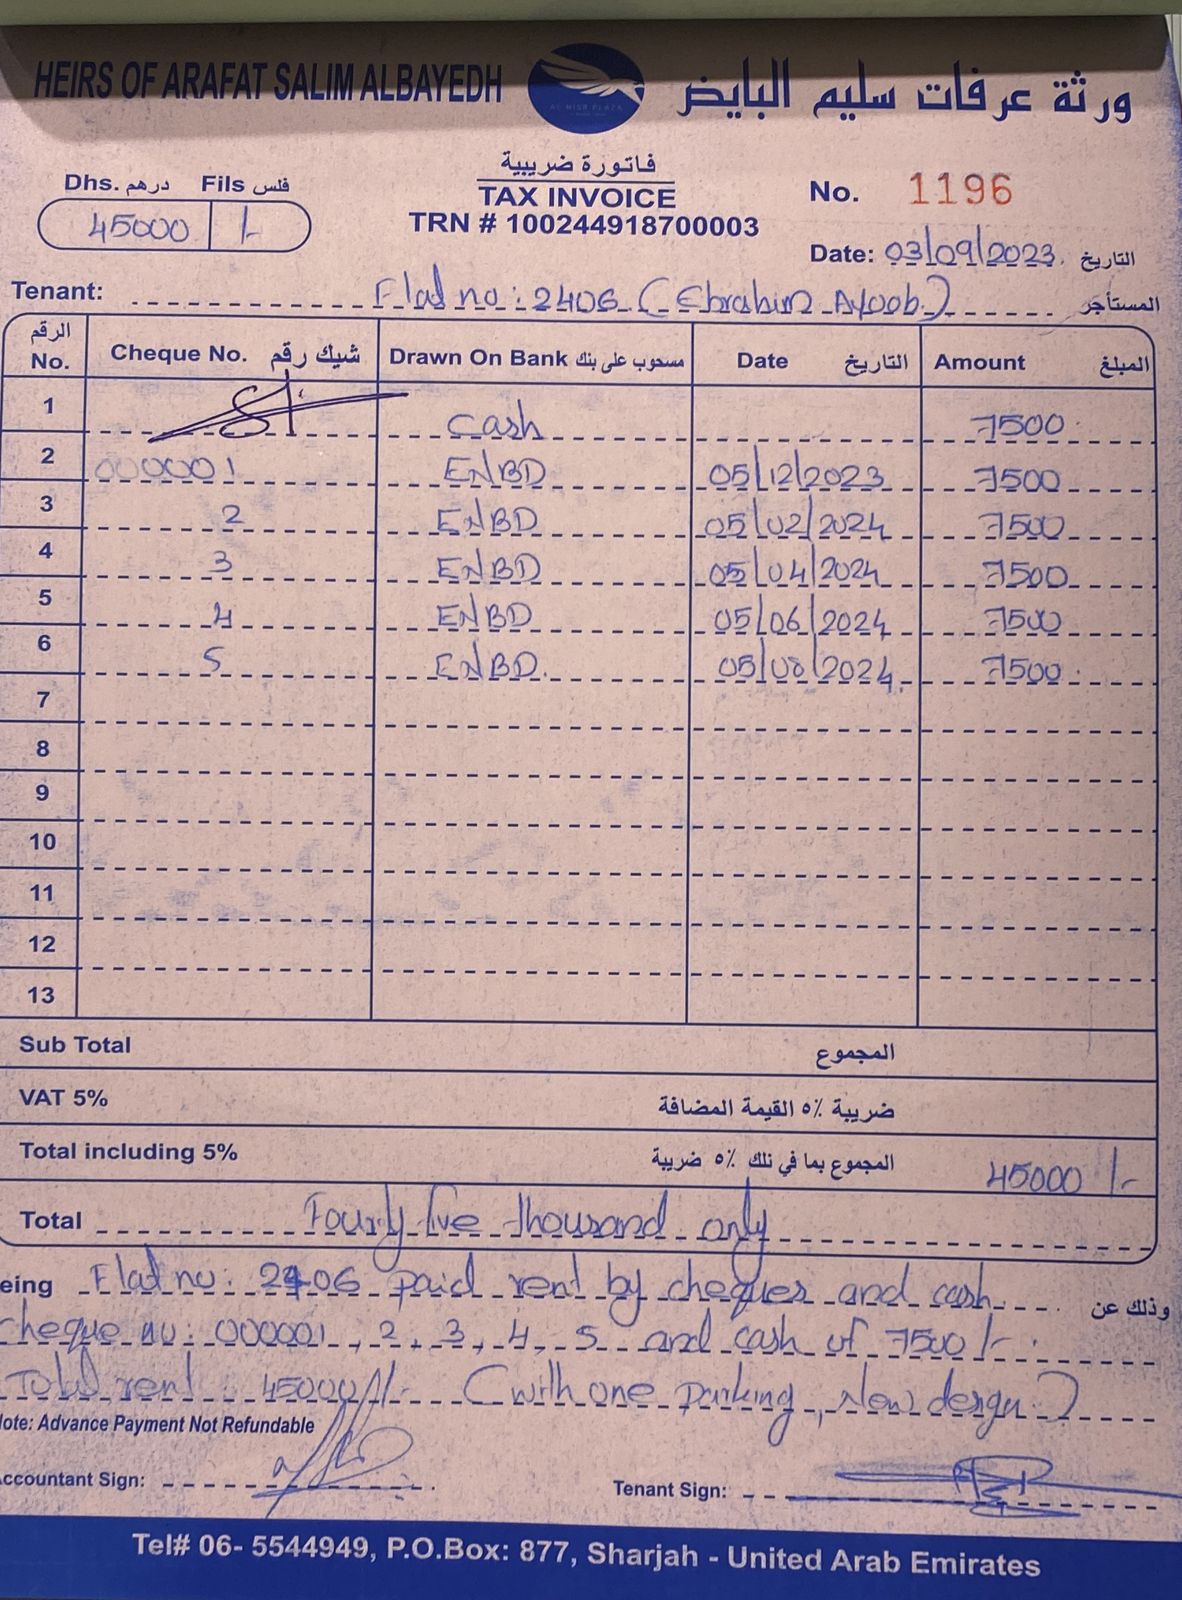 HEIRS OF ARAFAT SALIM ALBAYEDH
ورثة عرفات سليم البايض
AL MISR PLAZA
فاتورة ضريبية
TAX INVOICE
TRN # 100244918700003
Dhs. درهم Fils فلس
45000 /-
No. 1196
Date: 03/09/2023. التاريخ
Tenant: Flat no: 2406 (Ebrahim Ayoob.) المستأجر
الرقم No. Cheque No. شيك رقم Drawn On Bank مسحوب على بنك Date التاريخ Amount المبلغ
1 Cash 7500
2 000001 ENBD 05/12/2023 7500
3 2 ENBD 05/02/2024 7500
4 3 ENBD 05/04/2024 7500
5 4 ENBD 05/06/2024 7500
6 5 ENBD. 05/08/2024. 7500
7
8
9
10
11
12
13
Sub Total المجموع
VAT 5% ضريبة ٥٪ القيمة المضافة
Total including 5% المجموع بما في تلك ٥٪ ضريبة 45000 /-
Total Fourty five thousand only
eing Flat no: 2406 paid rent by cheques and cash وذلك عن
cheque no: 000001, 2, 3, 4, 5 and cash of 7500/-.
Total rent : 45000/- (with one parking, New design)
Note: Advance Payment Not Refundable
Accountant Sign:
Tenant Sign:
Tel# 06- 5544949, P.O.Box: 877, Sharjah - United Arab Emirates